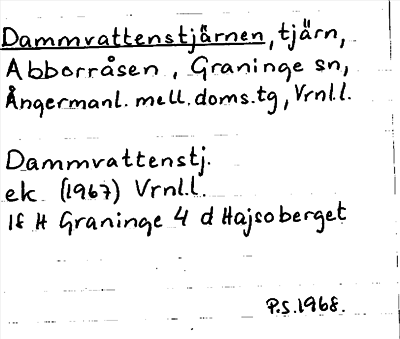 Dammvattenstjärnen, tjärn,
Abborråsen, Graninge sn,
Ångermanl. mell. doms.tg, Vrnl.l.
Dammvattenstj.
ek. (1967) Vrnl.l.
18 H Graninge 4 d Hajsoberget
P.S. 1968.